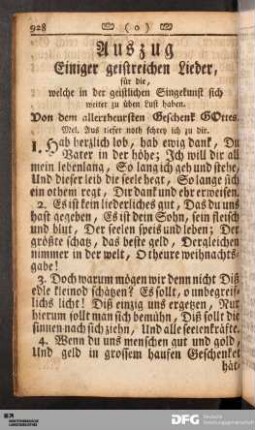 928 ( o )
Auszug
Einiger geistreichen Lieder,
für die,
welche in der geistlichen Singekunst sich
weiter zu üben Lust haben.
Von dem allertheursten Geschenk GOttes.
Mel. Aus tiefer noth schrey ich zu dir.
1. Hab herzlich lob, hab ewig dank, Du
Vater in der höhe; Ich will dir all
mein lebenlang, So lang ich geh und stehe,
Und dieser leib die seele hegt, So lange sich
ein othem regt, Dir dank und ehr erweisen.
2. Es ist kein liederliches gut, Das du uns
hast gegeben, Es ist dein Sohn, sein fleisch
und blut, Der seelen speis und leben; Der
größte schatz, das beste geld, Dergleichen
nimmer in der welt, O theure weihnachts-
gabe!
3. Doch warum mögen wir denn nicht Diß
edle kleinod schätzen? Es sollt, o unbegreif-
lichs licht! Diß einzig uns ergetzen, Nur
hierum sollt man sich bemühn, Diß sollt die
sinnen nach sich ziehn, Und alle seelenkräfte.
4. Wenn du uns menschen gut und gold,
Und geld in grossem haufen Geschenket
hät-
DFG